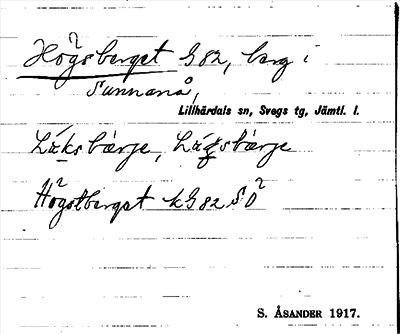 Högsberget G82, berg i
Sunnanå,
Lillhärdals sn, Svegs tg, Jämtl. l.
Högstberget kG82 SÖ
S. ÅSANDER 1917.